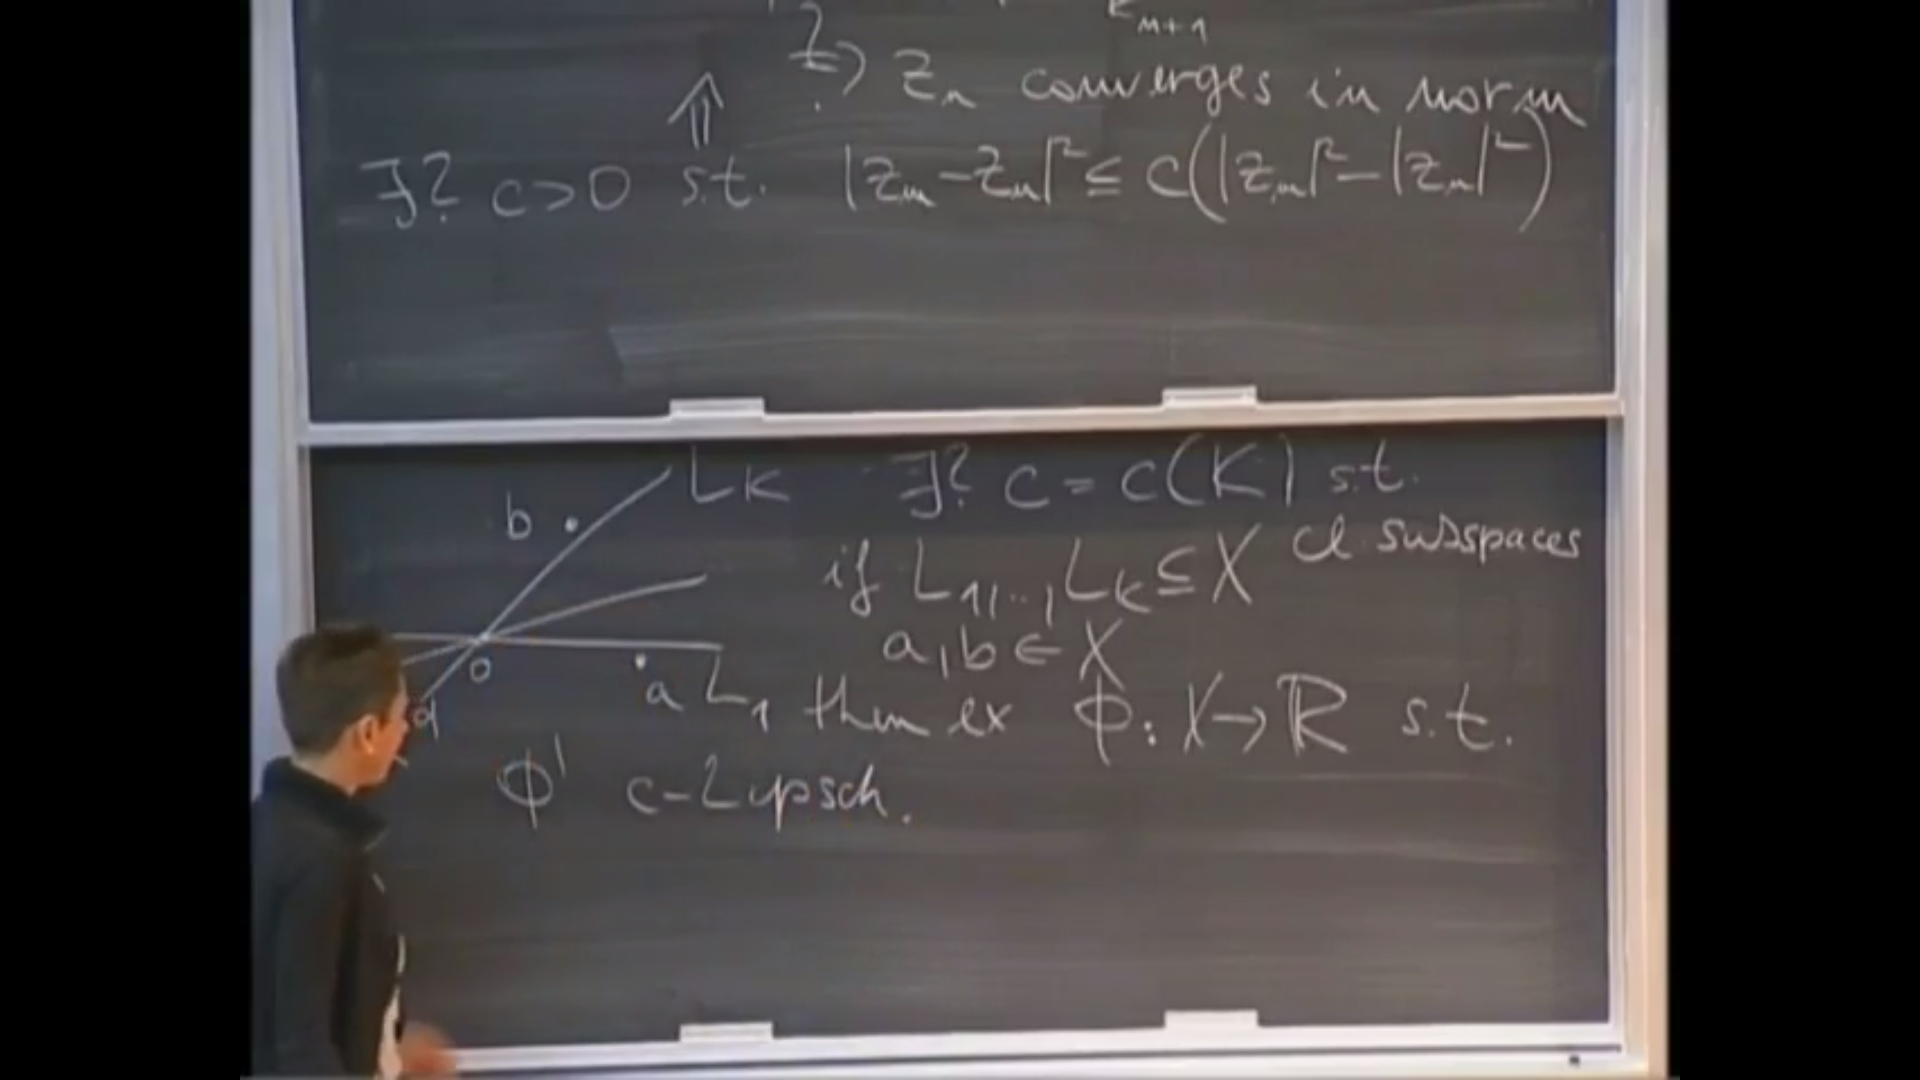 k_{n+1}
?⇒ z_n converges in norm
⇑
∃? c>0 s.t. |z_m-z_n|² ≤ c(|z_m|²-|z_n|²)
L_K ∃? c = c(K) s.t.
b
if L_1,..,L_K ⊆ X cl. subspaces
0 a,b ∈ X
a L_1 then ex Φ: X→ℝ s.t.
Φ' c-Lipsch.